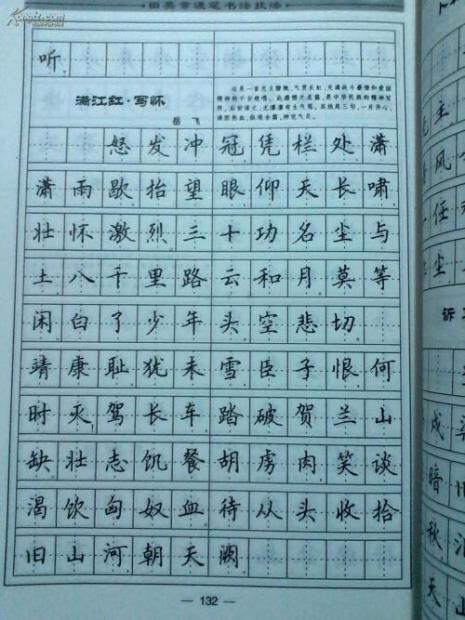 田英章硬笔书法技法
听
满江红·写怀
岳飞
怒发冲冠凭栏处潇
潇雨歇抬望眼仰天长啸
壮怀激烈三十功名尘与
土八千里路云和月莫等
闲白了少年头空悲切
靖康耻犹未雪臣子恨何
时灭驾长车踏破贺兰山
缺壮志饥餐胡虏肉笑谈
渴饮匈奴血待从头收拾
旧山河朝天阙
— 132 —
主
风
任
尘
诉
成
暗
秋
天